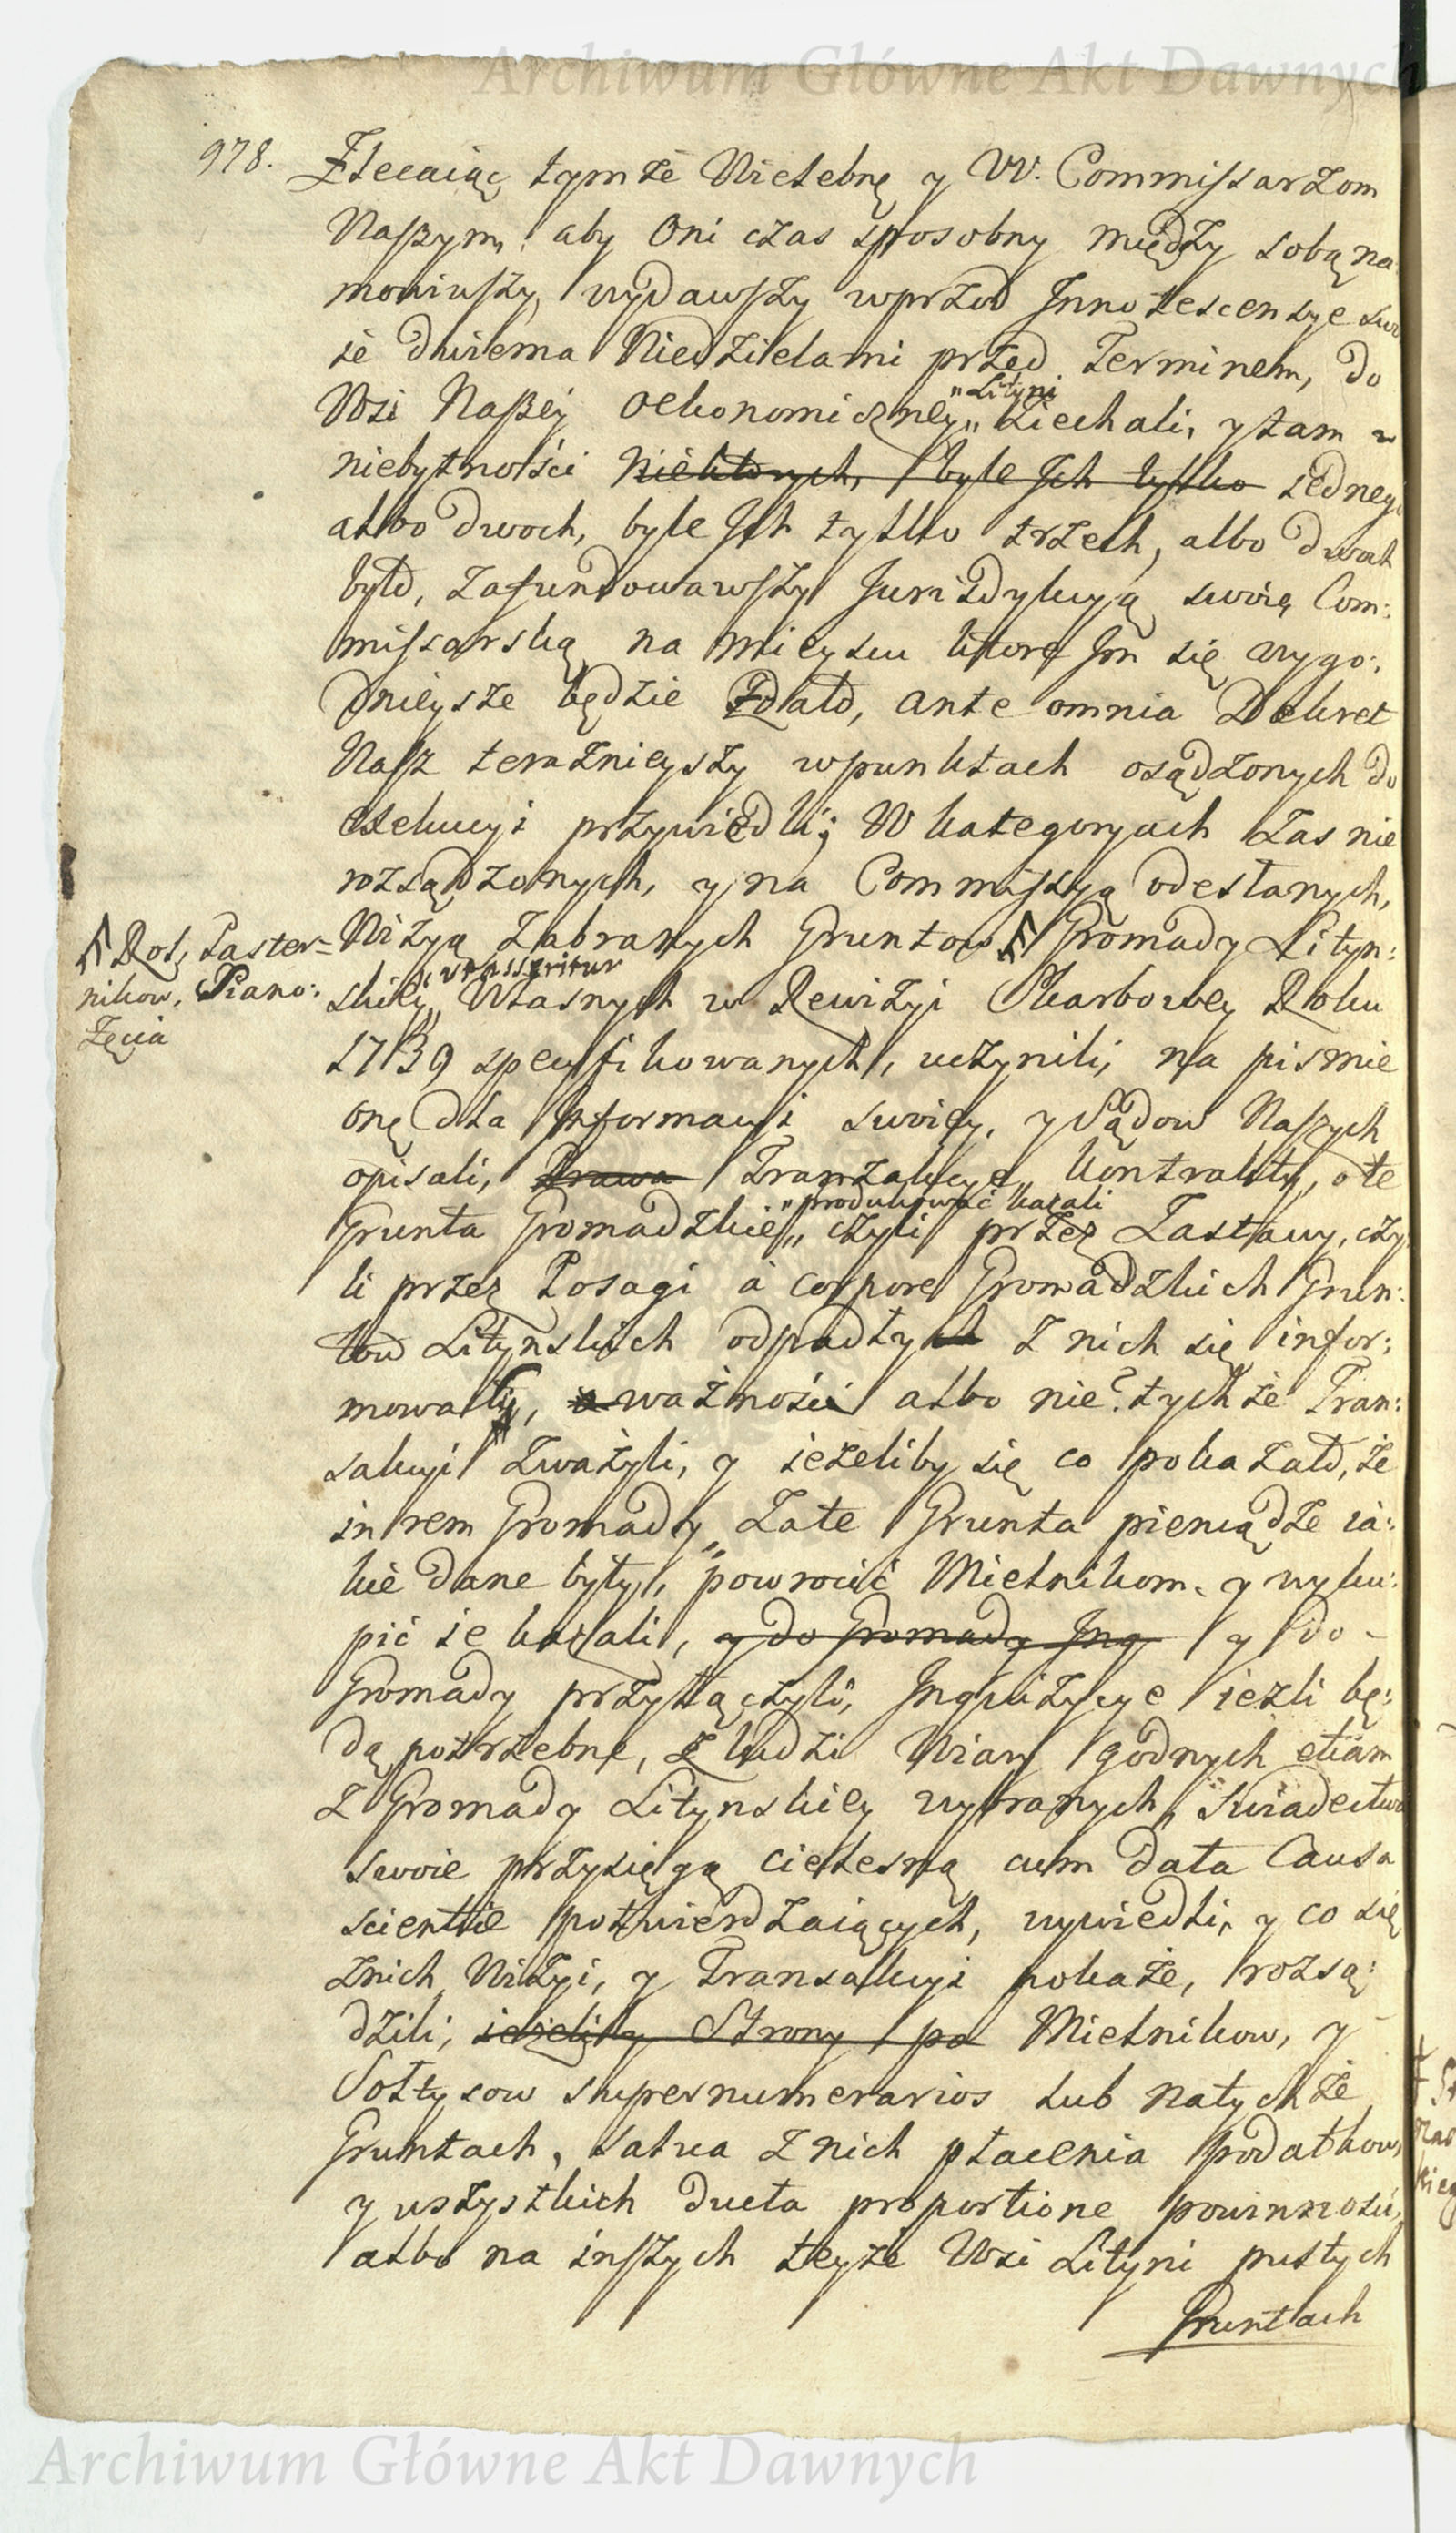 Archiwum Główne Akt Dawnych
978.
Zlecaiąc tymże Wielebnę y WW. Commissarzom
Naszym, aby oni czas sposobny między sobą na
mowiwszy, wydawszy wprzod Innotescensye swo
ie dwiema Niedzielami przed Terminem, do
Wsi Naszey oekonomiczney „Lityni„ ziechali, y tam w
niebytności Niektorych, byle Ich tylko iednego
albo dwoch, byle Ich tylko trzech, albo dwoch
było, zafundowawszy Jurizdykcyą swoię Com:
missarską na mieyscu ktore Im się wygo:
dnieysze będzie zdało, ante omnia Dekret
Nasz teraznieyszy w punktach osądzonych do
exekucyi przywiedli; W kategoryach zas nie
rozsądzonych, y na Commissyą odesłanych,
Wizyą zabranych Gruntow Gromady Lityn:
Rol, Paster=
nikow, Siano:
zęcia
skiey „ut asseritur Własnych w Rewizyi Skarbowey Roku
1739 specyfikowanych, uczynili, na pismie
onę dla Informacyi swoiey, y Sądow Naszych
opisali, Prawa Tranzakcye, kontrakty, o te
Grunta Gromadzkie „produkować kazali czyli przez Zastawy, czy
li przez Posagi à corpore Gromadzkich Grun:
tow Lityńskich odpadły z nich się infor:
mowali, a ważności albo nie? tychże Tran:
sakcyi zważyli, y ieżeliby się co pokazało, że
in rem Gromady za te Grunta pieniądze ia:
kie dane były, powrocić Mielnikom, y wyku:
pić ie kazali, y do Gromady Inq y do
Gromady przyłączyli, Inquizycye iezli bę:
dą potrzebne, z ludzi Wiary godnych etiam
z Gromady Lityńskiey wybranych, Swiadectwa
swoie przysięgą cielesną cum data Causa
scientiæ potwierdzaiących, wywiedli, y co się
z nich Wizyi, y Transakcyi pokaże, rozsą:
dzili, ieżeliby Strony po Mielnikow, y
Sołtysow supernumerarios lub na tychże
Gruntach, salva z nich płacenia podatkow,
y wszystkich ducta proportione powinności,
albo na inszych teyże Wsi Lityni pustych
Gruntach
Archiwum Główne Akt Dawnych